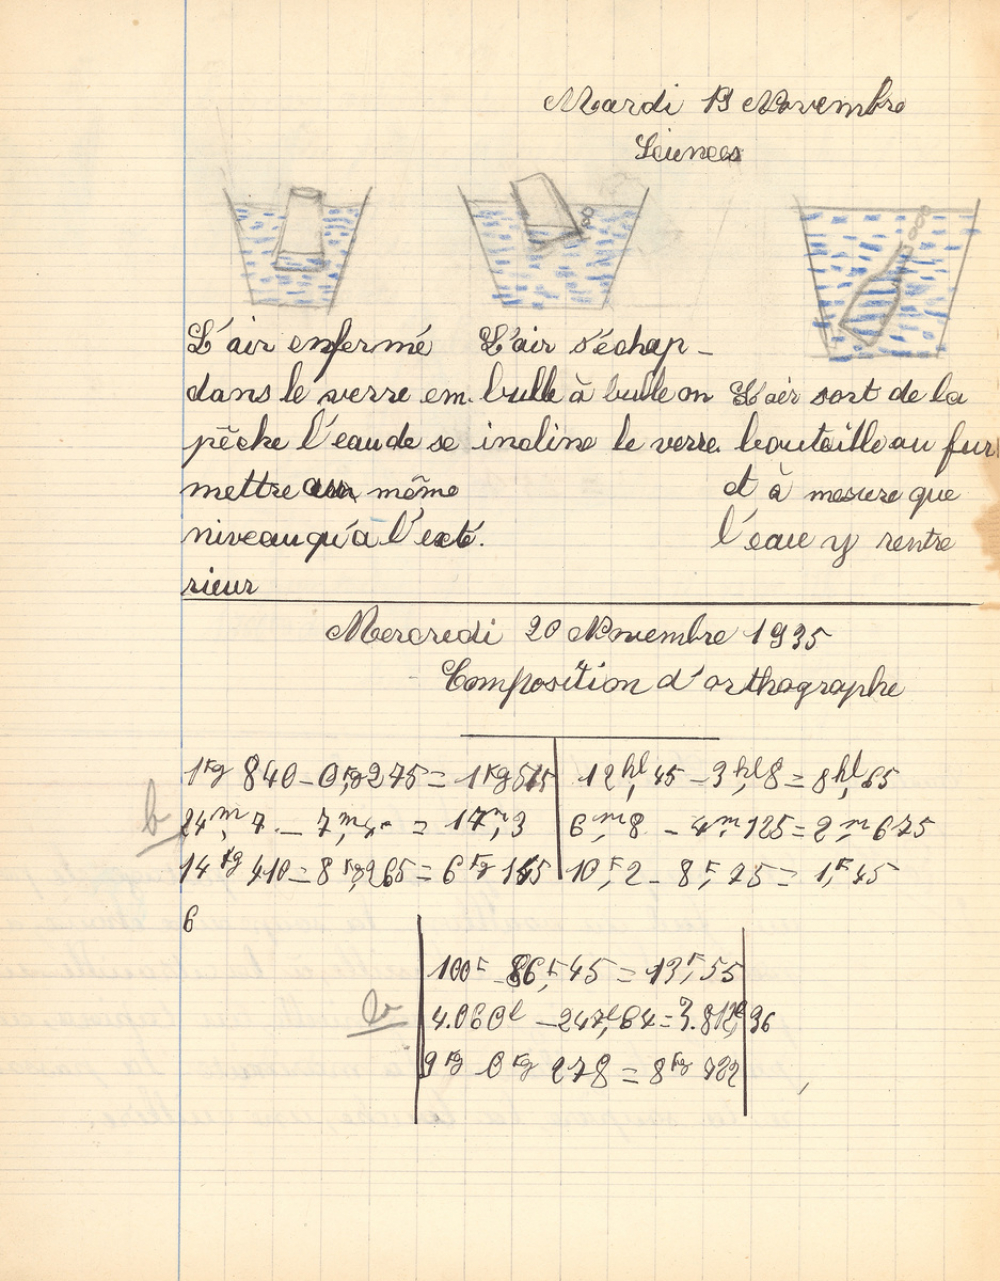 Mardi 19 Novembre
Sciences
L'air enfermé
dans le verre em
pêche l'eau de se
mettre au même
niveau qu'à l'exté.
rieur
L'air s'échap-
bulle à bulle on
incline le verre
L'air sort de la
bouteille au fur
et à mesure que
l'eau y rentre
Mercredi 20 Novembre 1935
Composition d'orthographe
1Kg 840 - 0Kg275 = 1Kg515
24m,7 - 7m,4 = 17m,3
14Kg 410 = 8Kg265 = 6Kg 145
12hl,45 - 3hl,8 = 8hl,65
6m8 - 4m125 = 2m675
10F,2 - 8F,75 = 1F,45
6
b
100F 86F,45 = 13F,55
4.060l - 247l,64 = 3.812l,36
9Kg 0Kg 278 = 8Kg 722
b